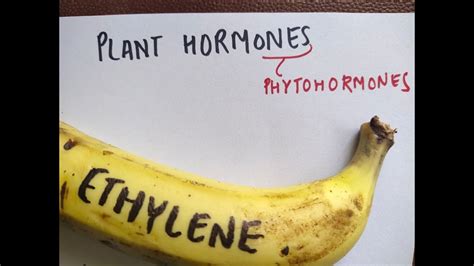 PLANT HORMONES
PHYTOHORMONES
ETHYLENE